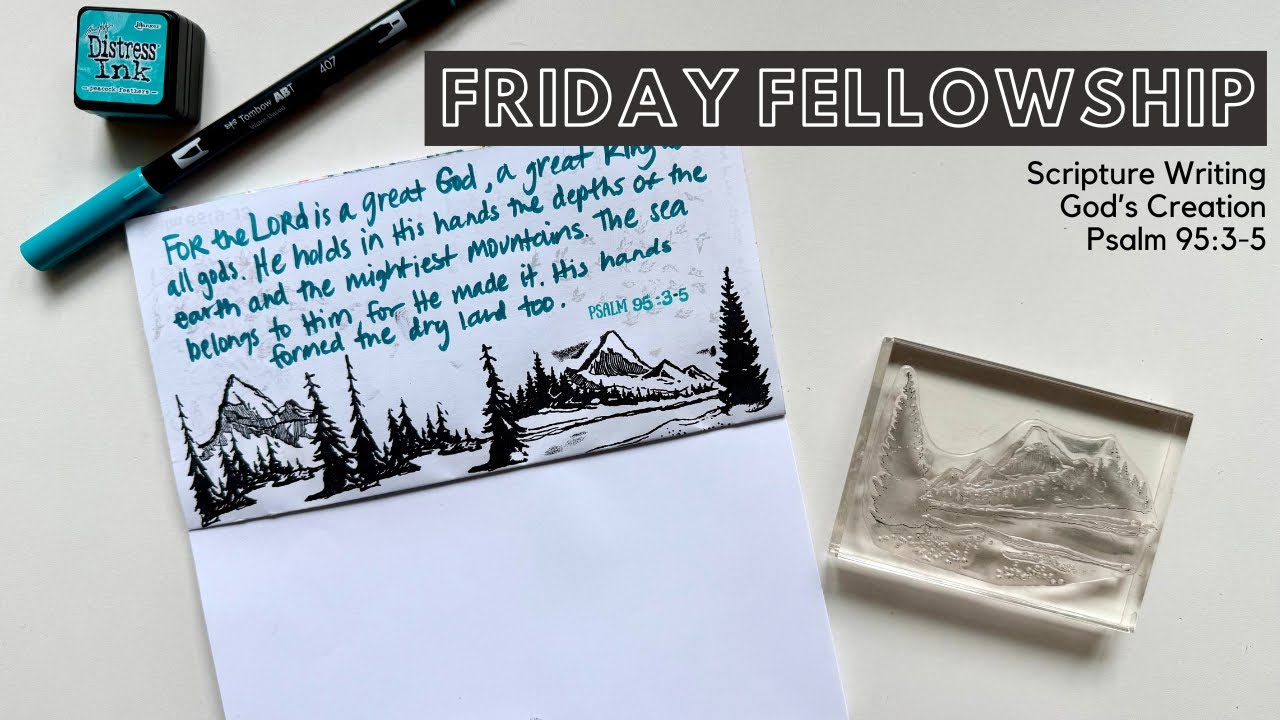 FRIDAY FELLOWSHIP
Scripture Writing
God's Creation
Psalm 95:3-5
Distress
Ink
peacock feathers
407
Tombow ABT
FOR the LORD is a great God, a great King
all gods. He holds in His hands the depths of the
earth and the mightiest mountains. The sea
belongs to Him for He made it. His hands
formed the dry land too.
PSALM 95:3-5